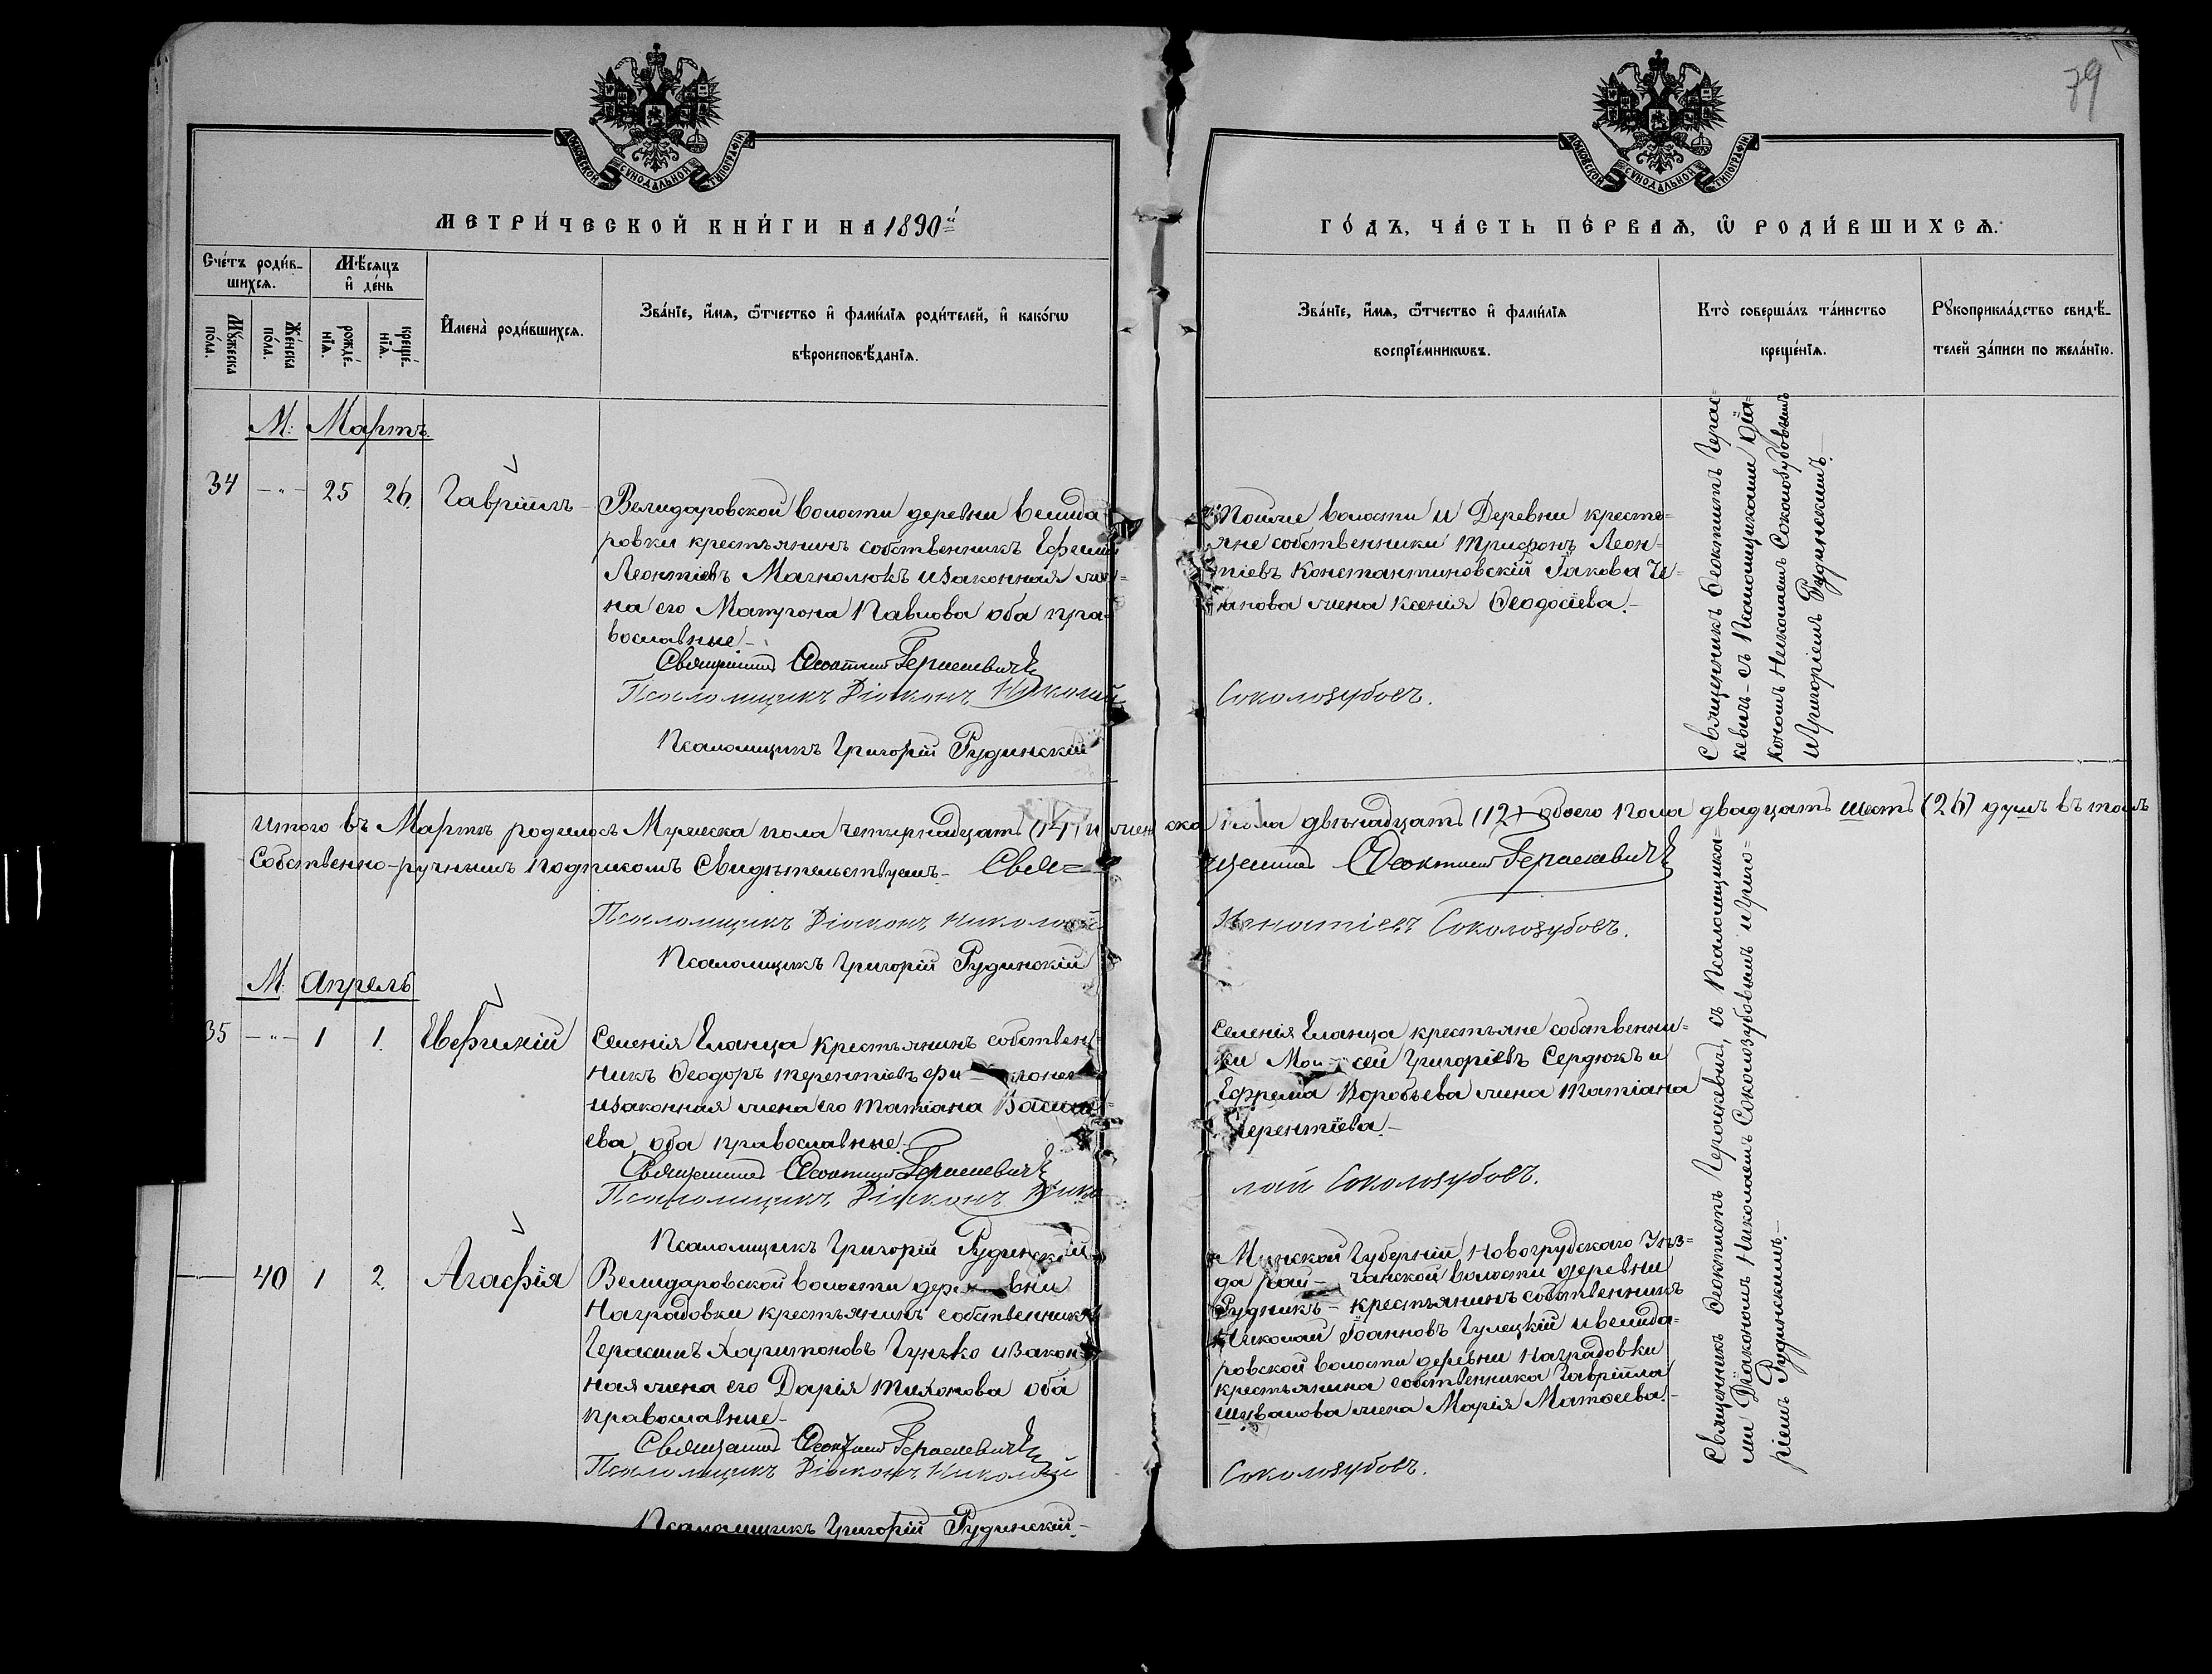 79
МОСКОВСКОЙ СѴНОДАЛЬНОЙ ТѴПОГРАФІИ
МОСКОВСКОЙ СѴНОДАЛЬНОЙ ТѴПОГРАФІИ
МЕТРИ́ЧЕСКОЙ КНИ́ГИ НА 1890й
ГО́ДЪ, ЧА́СТЬ ПЕ́РВАѦ, Ѽ РОДИ́ВШИХСѦ.
Сче́тъ роди́в-
шихсѧ.
Мѣ́сѧцъ
и҆ де́нь
Мꙋ́жеска
по́ла.
Же́нска
по́ла.
рожде́-
нїѧ.
креще́-
нїѧ.
И҆мена̀ роди́вшихсѧ.
Зва́нїе, и҆́мѧ, ѻ҆́тчество и҆ фами́лїѧ роди́телей, и҆ како́гѡ
вѣроисповѣ́данїѧ.
Зва́нїе, и҆́мѧ, ѻ҆́тчество и҆ фами́лїѧ
воспрїе́мникѡвъ.
Кто̀ соверша́лъ та́инство
креще́нїѧ.
Рꙋкоприкла́дство свидѣ́-
телей за́писи по жела́нїю.
М: Мартъ
34 -"- 25 26. Гавріилъ
Велидаровской волости деревни Велида
ровки крестьянинъ собственникъ Ефимъ
Леонтіевъ Магнолюкъ изаконная же-
на его Матрона Павлова оба пра-
вославные-
Священникъ Ѳеоктистъ Гераскевичъ
Псаломщикъ Діаконъ Николай
Псаломщикъ Григорій Рудинскій
Тойже волости и Деревни кресть-
яне собственники Трифонъ Леон-
тіевъ Константиновскій Іакова
жена Ксенія Ѳеодосіева.-
Соколозубовъ.
Священникъ Ѳеоктистъ Герас-
кевичъ-съ Псаломщиками Діа-
кономъ Николаемъ Соколозубовымъ
иГригоріемъ Рудинскимъ.
Итого въ Мартѣ родилось Мужеска пола четырнадцать (14) и женска пола двѣнадцать (12) обоего пола двадцать шесть (26) душъ въ томъ
Собственно-ручнымъ подписомъ Свидѣтельствуемъ- Свя=
щенникъ Ѳеоктистъ Гераскевичъ
Псаломщикъ Діаконъ Николай
Игнатіевъ Соколозубовъ.
Псаломщикъ Григорій Рудинскій
М. Апрель
35 -"- 1 1. Евфимій
Селенія Еланца крестьянинъ собствен-
никъ Ѳеодоръ Терентіевъ
изаконная жена его Татіана Василь-
ева оба православные.
Священникъ Ѳеоктистъ Гераскевичъ
Псаломщикъ Діаконъ Нико
Псаломщикъ Григорій Рудинскій
Селенія Еланца крестьяне собственни-
ки Моисей Григоріевъ Сердюкъ и
Ефрема Воробьева жена Татіана
Терентіева.-
лай Соколозубовъ.
40 1 2. Агафія
Велидаровской волости деревни
Наградовки крестьянинъ собственникъ
Герасимъ Харитоновъ Гунько изакон-
ная жена его Дарія Тихонова оба
православные-
Священникъ Ѳеоктистъ Гераскевичъ
Псаломщикъ Діаконъ Николай
Псаломщикъ Григорій Рудинскій-
Минской Губерніи, Новогрудского Уѣз-
да Рай- чанской волости деревни
Рудникъ- крестьянинъ собственникъ
Николай Іоанновъ Гулецкій иВелида-
ровской волости деревни Наградовки
крестьянина собственника Гавріила
Шувалова жена Марія Матѳеева.-
Соколозубовъ.
Священникъ Ѳеоктистъ Гераскевичъ, съ Псаломщика-
ми Діакономъ Николаемъ Соколозубовымъ иГриго-
ріемъ Рудинскимъ.-